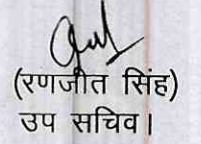 (रणजीत सिंह)
उप सचिव।